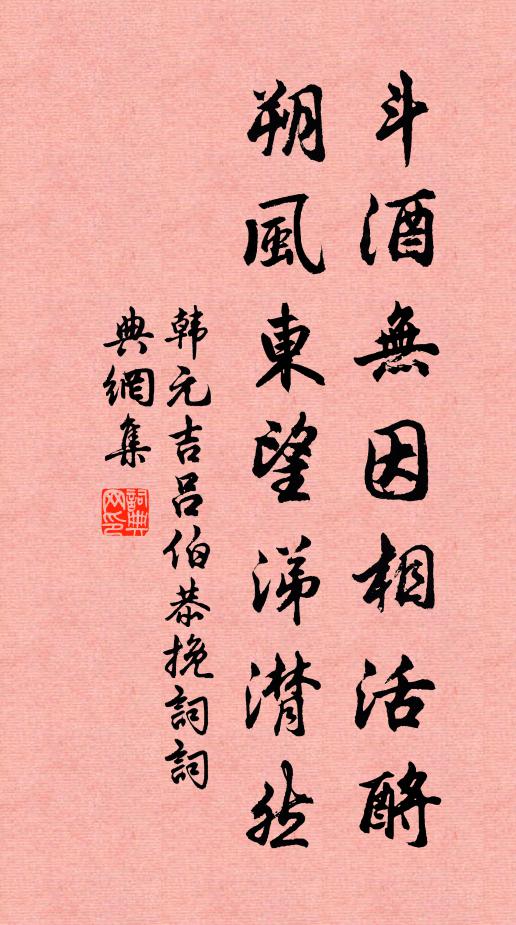 斗酒無因相活酹
朔風東望涕潸然
韩元吉吕伯恭挽詞詞
典網集
詞典網印